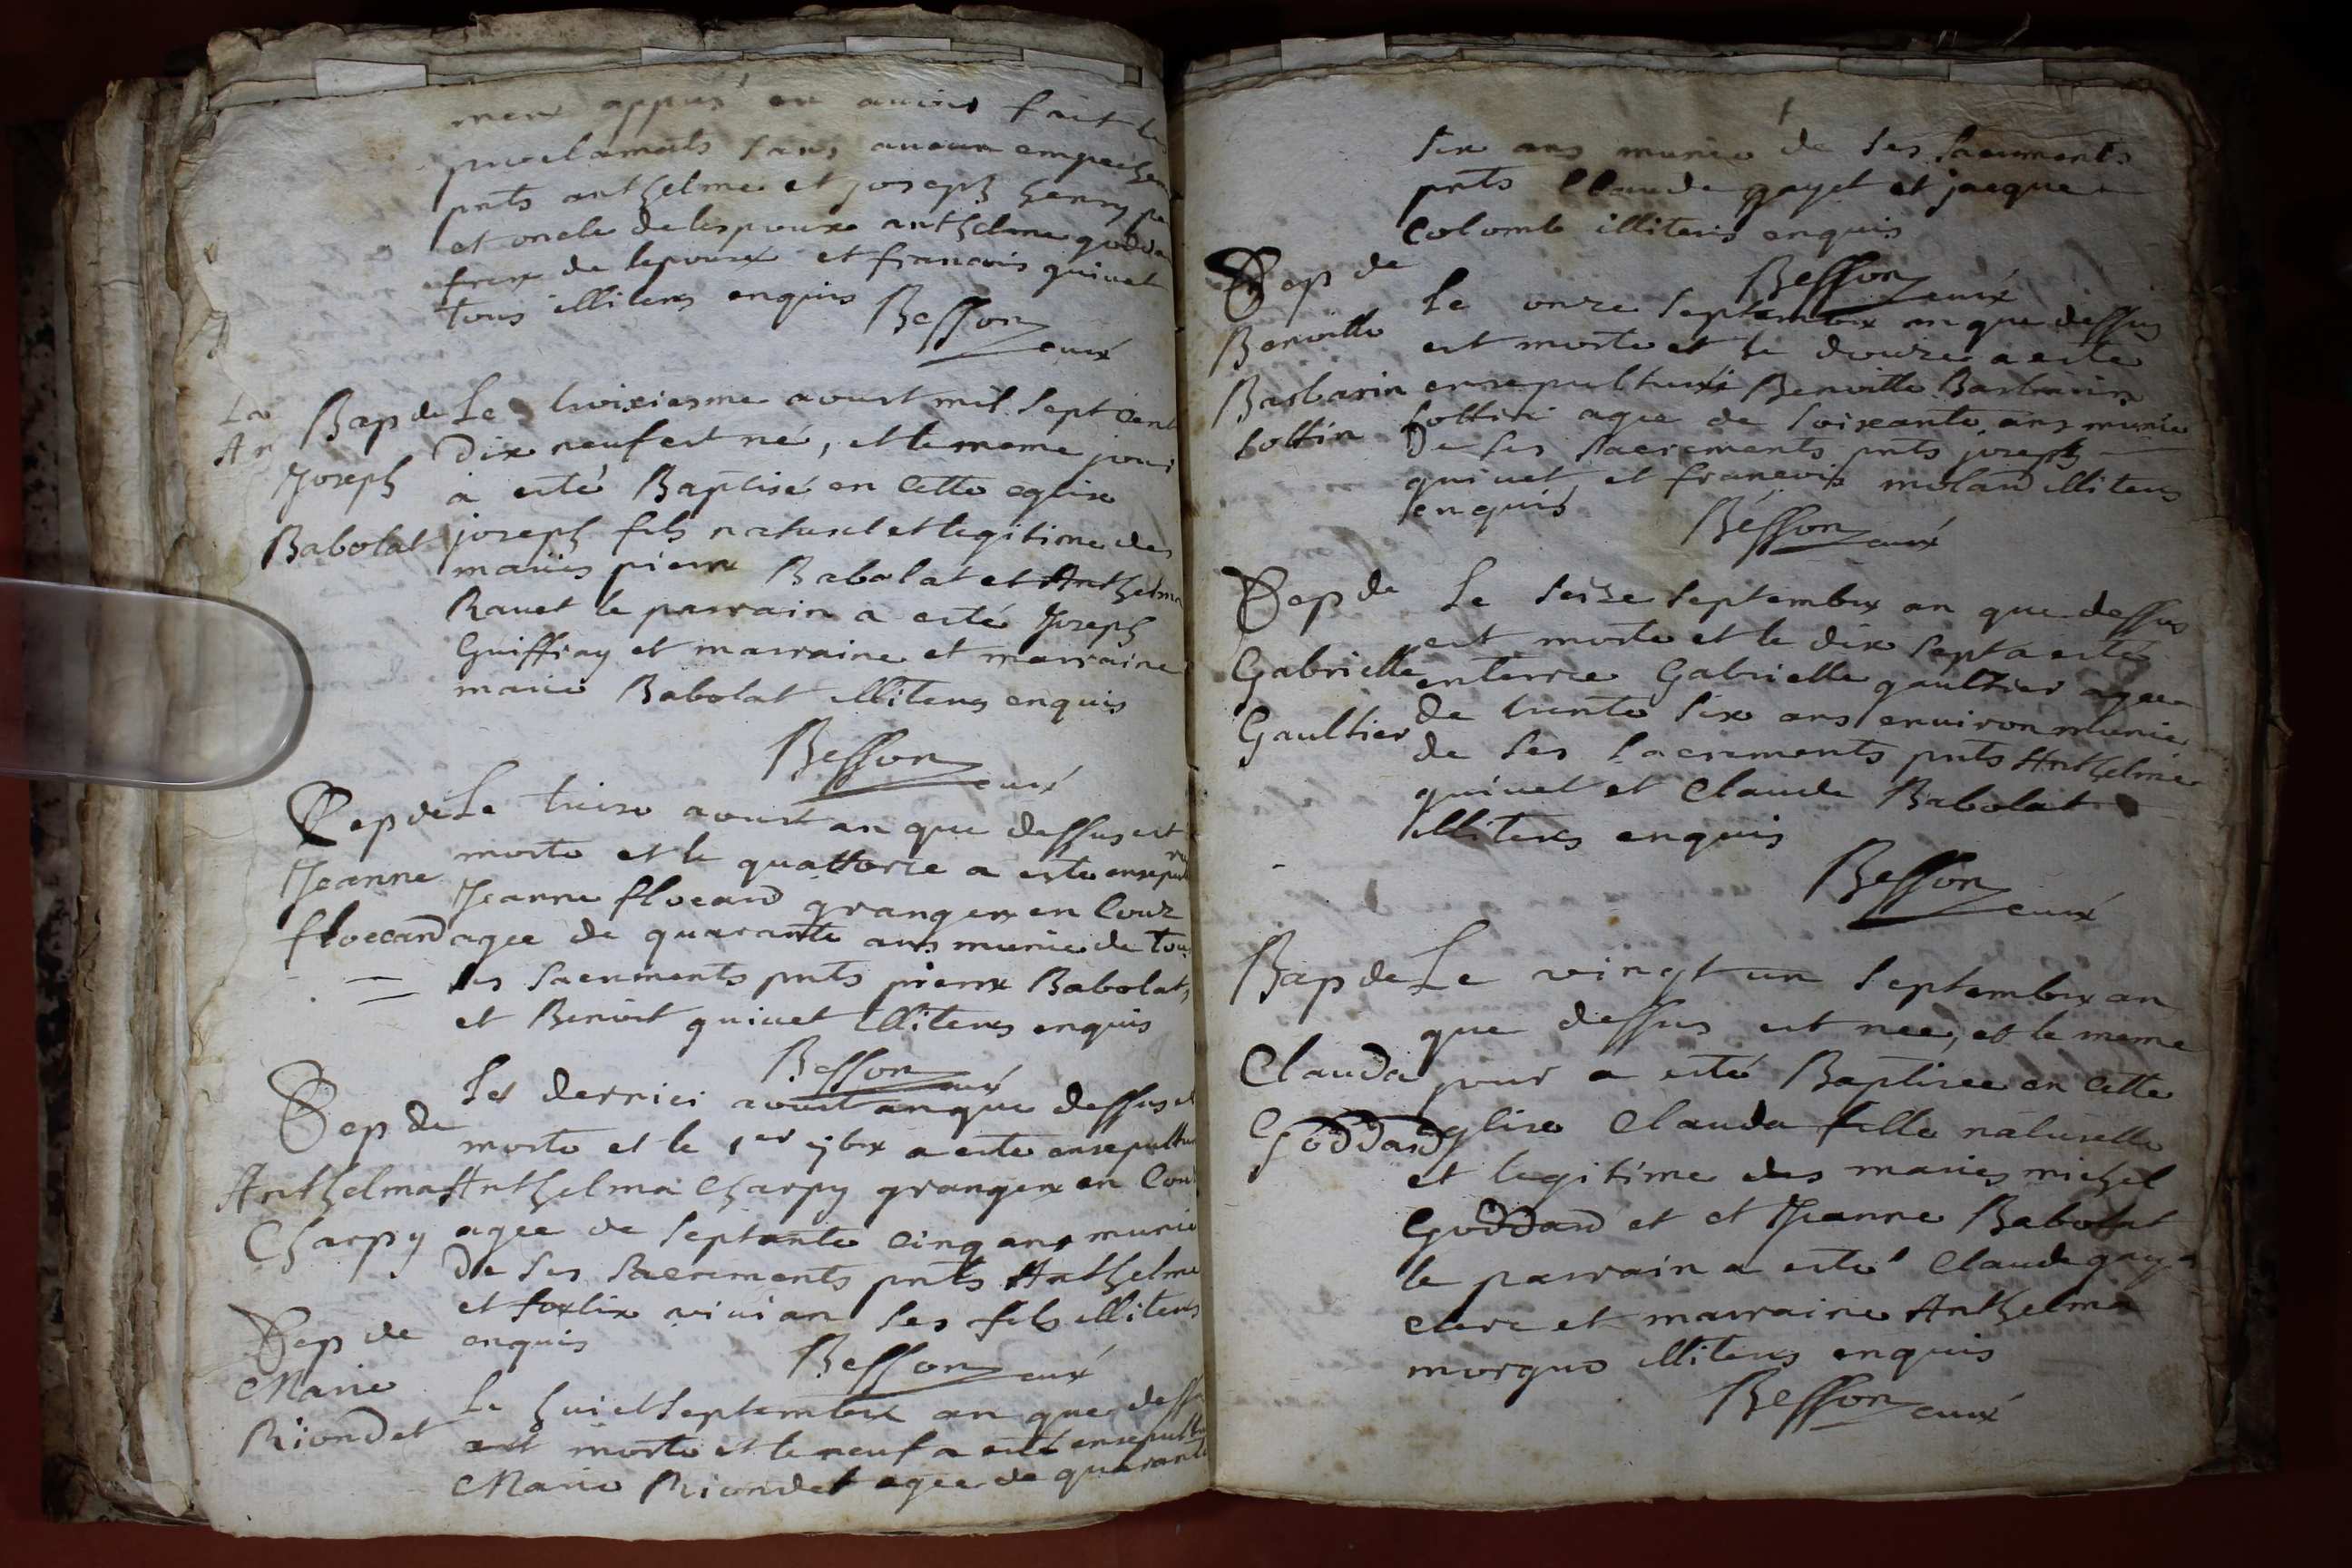 fait les
proclamats sans aucun empeche
pnts anthelme et joseph henry pe
et oncle de lespoux anthelme godda
frere de lepouse et francois quinet
tous illiteres enquis Besson
curé
Bap de
Joseph
Babolat
Le troixiesme aoust mil sept cent
Dix neuf est né, et le meme jour
a esté Baptisé en cette eglise
joseph fils naturel et legitime des
mariés pierre Babolat et Anthelma
Ravet le parrain a esté Joseph
Guiffray et marraine et marraine
marie Babolat illiteres enquis
Besson
curé
Sep de
Jeanne
floccard
Le treize aoust an que dessus est
morte et le quattorze a este ensepu
Jeanne floccard grangere en Cour
agee de quarante ans munie de tous
les sacrements pnts pierre Babolat
et Benoist quinet illiteres enquis
Besson curé
Sep de
Anthelma
Charpy
Le dernier aoust an que dessus e
morte et le 1er 7bre a este ensepultu
Anthelma Charpy grangere en Cour
agee de septante cinq ans munie
De ses sacrements pnts Anthelme
et vivian ses fils illiteres
enquis
Besson curé
Sep de
Marie
Riondet
Le huict Septembre an que dess
est morte et le neuf a esté ensepultu
Marie Riondet agee de quarante
six ans munie de ses sacrements
pnts Claude gayet et jacque
Colomb illiteres enquis
Besson curé
Sep de
Benoitte
Barbarin
Cottin
Le onze Septembre an que dessus
est morte et le douze a este
ensepulturée Benoitte Barbarin
Cottin agee de soixante ans munie
De ses sacrements pnts joseph
quinet et francois molard illiteres
enquis
Besson curé
Sep de
Gabrielle
Gaultier
Le seize septembre an que dessus
est morte et le dix sept a esté
enterree Gabrielle gaultier agee
De trente six ans environ munie
de ses sacrements pnts Anthelme
quinet et Claude Babolat
illiteres enquis
Besson
curé
Bap de
Clauda
Goddard
Le vingt un Septembre an
que dessus est nee, et le meme
jour a esté Baptisee en cette
eglise Clauda fille naturelle
et legitime des maries michel
Goddard et et Jeanne Babolat
le parrain a esté Claude gay
clerc et marraine Anthelma
morgue illiteres enquis
Besson curé